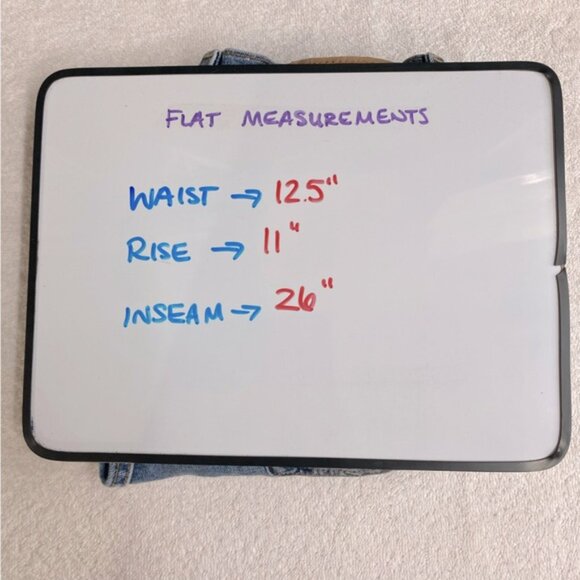 FLAT MEASUREMENTS
WAIST → 12.5"
RISE → 11"
INSEAM → 26"